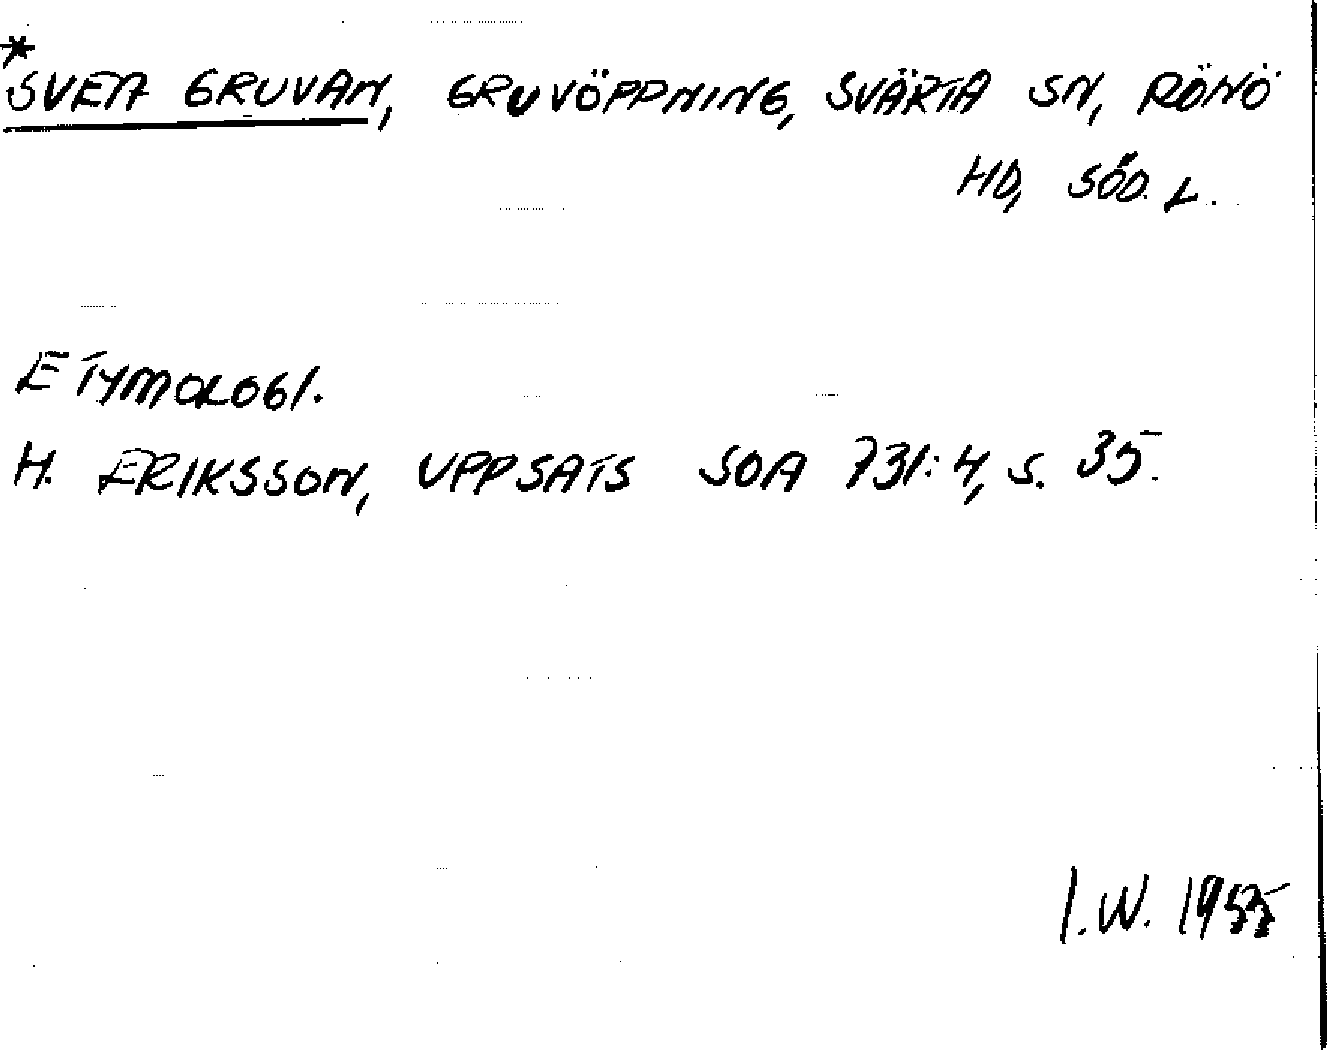 *SVEA GRUVAN, GRUVÖPPNING, SVÄRTA SN, RÖNÖ
HD, SÖD. L.
ETYMOLOGI.
H. ERIKSSON, UPPSATS SOA 731:4, S. 35.
I.W. 1955